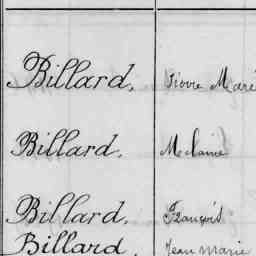 Billard, Pierre Marie
Billard, Mélanie
Billard, François
Billard, Jean Marie